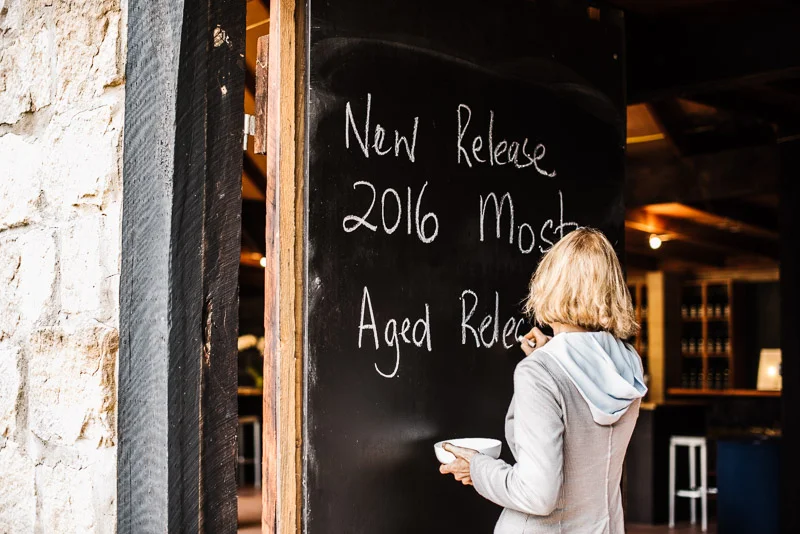 New Release
2016 Most
Aged Relea